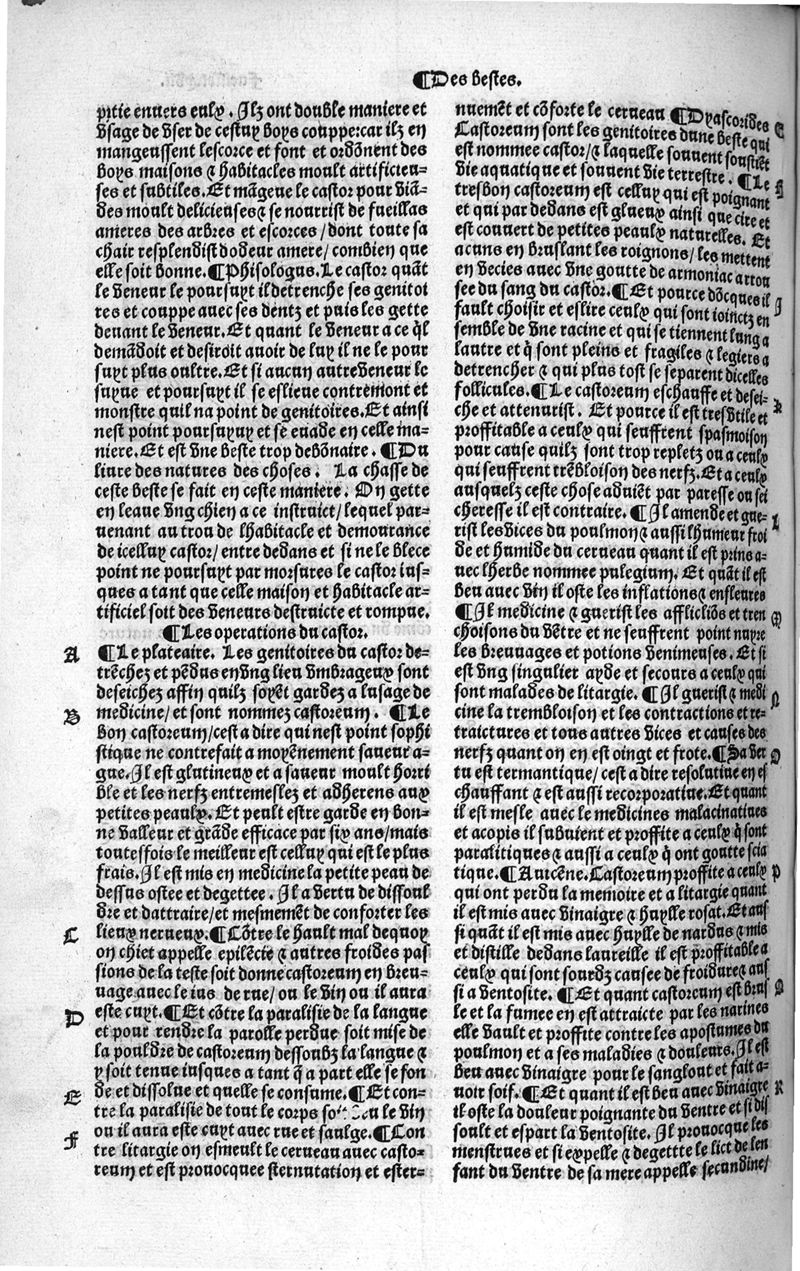 ¶Des bestes.
pitie enuers eulx. Ilz ont double maniere et
vsage de vser de cestuy boys couppe:car ilz en
mangeussent lescorce et font et ordõnent des
boys maisons ⁊ habitacles moult artificieu-
ses et subtiles. Et mãgeue le castor pour viã-
des moult delicieuses ⁊ se nourrist de fueillas
ameres des arbres et escorces/dont toute sa
chair resplendist dodeur amere/combien que
elle soit bonne. ¶Phisologus. Le castor quãt
le veneur le poursuyt il detrenche ses genitoi
res et couppe auec ses dentz et puis les gette
deuant le veneur. Et quant le veneur a ce q̃l
demãdoit et desiroit auoir de luy il ne le pour
suyt plus oultre. Et si aucun autre veneur le
suyue et poursuyt il se eslieue contremont et
monstre quil na point de genitoires. Et ainsi
nest point poursuyuy et se euade en celle ma-
niere. Et est vne beste trop debõnaire. ¶Du
liure des natures des choses. La chasse de
ceste beste se fait en ceste maniere. On gette
en leaue vng chien a ce instruict/lequel par-
uenant au trou de lhabitacle et demourance
de icelluy castor/entre dedans et si ne le blece
point ne poursuyt par morsures le castor ius-
ques a tant que celle maison et habitacle ar-
tificiel soit des veneurs destruicte et rompue.
¶Les operations du castor.
A ¶Le plateaire. Les genitoires du castor de-
trẽchez et pẽdus en vng lieu vmbrageux sont
deseichez affin quilz soyẽt gardez a lusage de
B medicine/et sont nommez castoreum. ¶Le
bon castoreum/cest a dire qui nest point sophi
stique ne contrefait a moyẽnement saueur a-
gue. Il est glutineux et a saueur moult horri
ble et les nerfz entremeslez et adherens aux
petites peaulx. Et peult estre garde en bon-
ne valleur et grãde efficace par six ans/mais
toutesfois le meilleur est celluy qui est le plus
frais. Il est mis en medicine la petite peau de
dessus ostee et degettee. Il a vertu de dissoul
dre et dattraire/et mesmemẽt de conforter les
C lieux nerueux. ¶Cõtre le hault mal dequoy
on chiet appelle epilẽcie ⁊ autres froides pas
sions de la teste soit donne castoreum en breu-
uage auec le ius de rue/ou le vin ou il aura
D este cuyt. ¶Et cõtre la paralisie de la langue
et pour rendre la parolle perdue soit mise de
la pouldre de castoreum dessoubz la langue ⁊
y soit tenue iusques a tant q̃ a part elle se fon
E de et dissolue et quelle se consume. ¶Et con-
tre la paralisie de tout le corps soit beu le vin
F ou il aura este cuyt auec rue et saulge. ¶Con
tre litargie on esmeult le cerueau auec casto-
reum et est prouocquee sternutation et ester-
nuemẽt et cõforte le cerueau ¶Dyascorides G
Castoreum sont les genitoires dune beste qui
est nommee castor/⁊ laquelle souuent soustiẽt
vie aquatique et souuent vie terrestre. ¶Le H
tresbon castoreum est celluy qui est poignant
et qui par dedans est glueux ainsi que cire et
est couuert de petites peaulx naturelles. Et
acuns en bruslant les roignons/les mettent
en vecies auec vne goutte de armoniac arrou
see du sang du castor. ¶Et pource dõcques il I
fault choisir et eslire ceulx qui sont ioinctz en
semble de vne racine et qui se tiennent lung a
lautre et q̃ sont pleins et fragiles ⁊ legiers a
detrencher ⁊ qui plus tost se separent dicelles
follicules. ¶Le castoreum eschauffe et desei- K
che et attenurist. Et pource il est tresvtile et
proffitable a ceulx qui seuffrent spasmoison
pour cause quilz sont trop repletz ou a ceulx
qui seuffrent trẽbloison des nerfz. Et a ceulx
ausquelz ceste chose aduiẽt par paresse ou sei
cheresse il est contraire. ¶Il amende et gue- L
rist les vices du poulmon ⁊ aussi lhumeur froi
de et humide du cerueau quant il est prins a-
uec lherbe nommee pulegium. Et quãt il est
beu auec vin il oste les inflations ⁊ enfleures
¶Il medicine ⁊ guerist les afflictiõs et tren M
choisons du vẽtre et ne seuffrent point nuyre
les breuuages et potions venimeuses. Et si
est vng singulier ayde et secours a ceulx qui
sont malades de litargie. ¶Il guerist ⁊ medi N
cine la trembloison et les contractions et re-
traictures et tous autres vices et causes des
nerfz quant on en est oingt et frote. ¶Sa ver O
tu est termantique/cest a dire resolutiue en es
chauffant ⁊ est aussi recorporatiue. Et quant
il est mesle auec le medicines malacinatiues
et acopis il subuient et proffite a ceulx q̃ sont
paralitiques ⁊ aussi a ceulx q̃ ont goutte scia
tique. ¶Auicẽne. Castoreum proffite a ceulx P
qui ont perdu la memoire et a litargie quant
il est mis auec vinaigre ⁊ huylle rosat. Et aus
si quãt il est mis auec huylle de nardus ⁊ mis
et distille dedans laureille il est proffitable a
ceulx qui sont sourdz causee de froidure ⁊ aus
si a ventosite. ¶Et quant castoreum est brus Q
le et la fumee en est attraicte par les narines
elle vault et proffite contre les apostumes du
poulmon et a ses maladies ⁊ douleurs. Il est
beu auec vinaigre pour le sanglout et fait a-
uoir soif. ¶Et quant il est beu auec vinaigre R
il oste la douleur poignante du ventre et si dis
soult et espart la ventosite. Il prouocque les
menstrues et si expelle ⁊ degettte le lict de len
fant du ventre de sa mere appelle secundine/